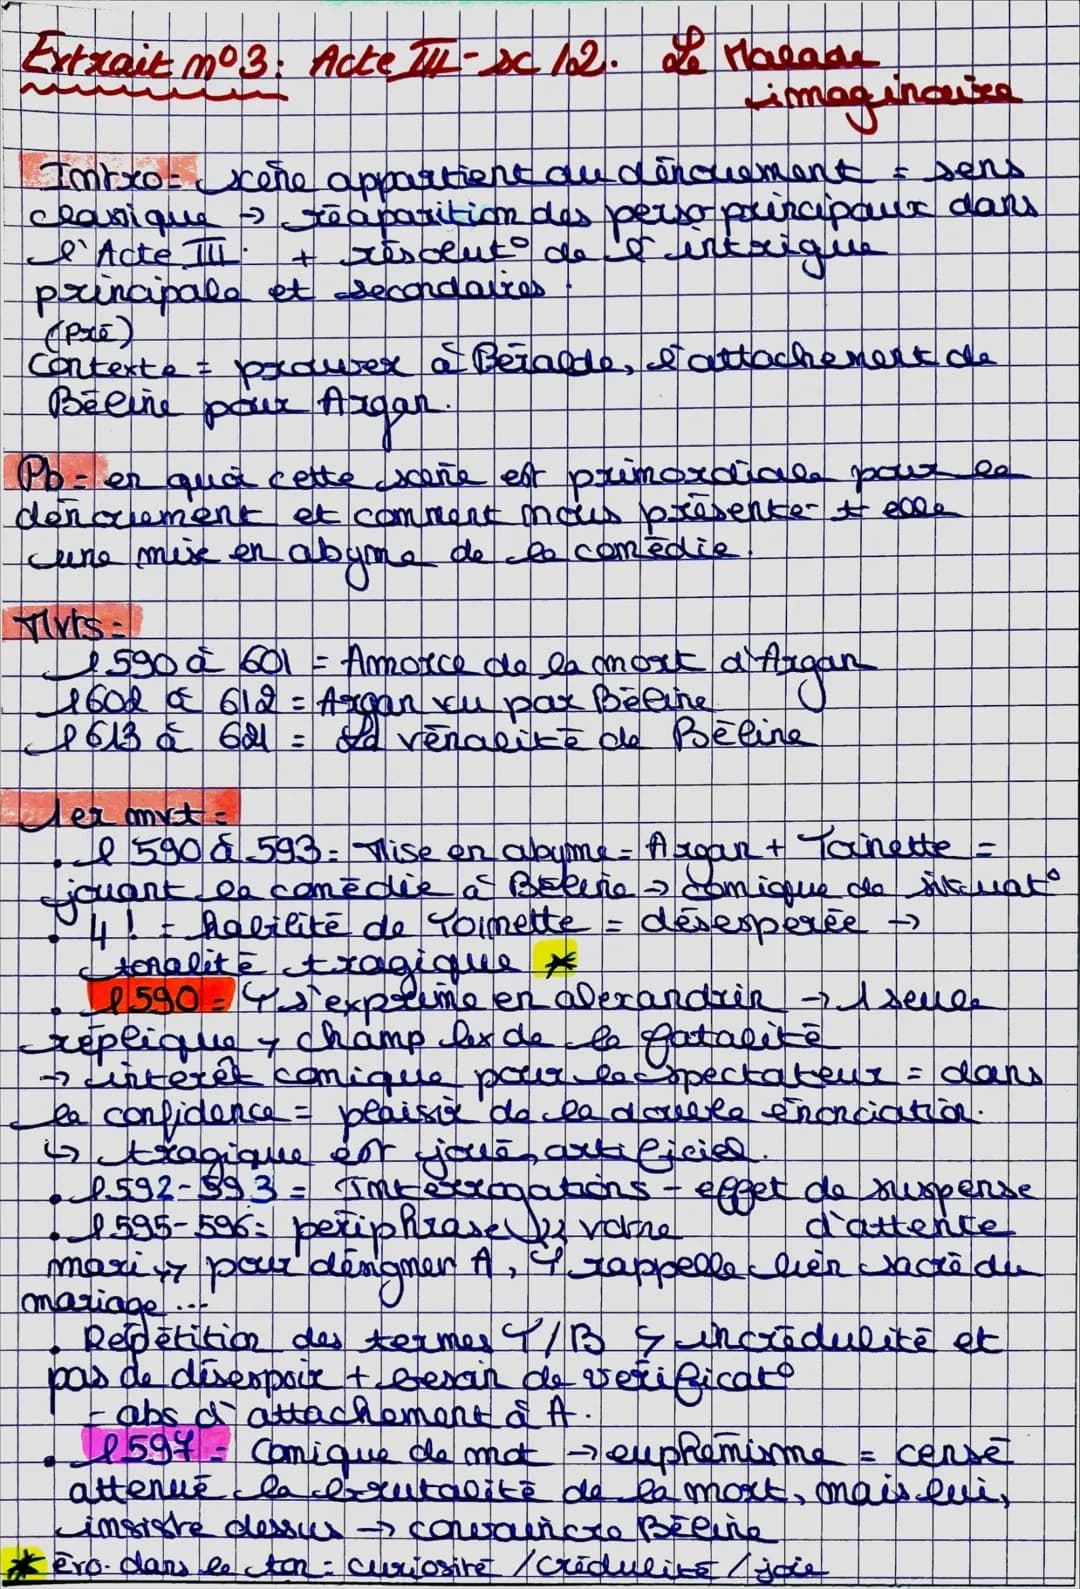 Extrait n°3: Acte III - sc 12. Le Malade
imaginaire
Intro = scène appartient au dénouement = sens
classique → réaparition des perso principaux dans
l'Acte III. + résolut° de l'intrigue
principale et secondaires.
(Pré)
Contexte = prouver à Béralde, l'attachement de
Béline pour Argan.
Pb = en quoi cette scène est primordiale pour le
dénouement et comment nous présente-t-elle
une mise en abyme de la comédie.
Mvts =
l 590 à 601 = Amorce de la mort d'Argan
l 602 à 612 = Argan vu par Béline
l 613 à 621 = La vénalité de Béline
1er mvt =
. l 590 à 593 = Mise en abyme = Argan + Toinette =
jouant la comédie à Béline → comique de situat°
. 4 ! = habilité de Toinette = désespérée →
tonalité tragique *
. l 590 = T s'exprime en alexandrin → 1 seule
réplique + champ lex de la fatalité
→ intérêt comique pour le spectateur = dans
la confidence = plaisir de la double énonciation.
↳ tragique est joué, artificiel.
. l 592-593 = Interrogations - effet de suspense
d'attente
. l 595-596 = periphrase << votre
mari >> pour désigner A, T rappelle lien sacré du
mariage ...
. Répétition des termes T/B ↳ incrédulité et
pas de désespoir + besoin de vérificat°
- abs d'attachement à A.
. l 597 = Comique de mot → euphémisme = censé
attenué la brutalité de la mort, mais lui,
insistre dessus → convaincre Béline
* évo. dans le ton = curiosité / crédulité / joie